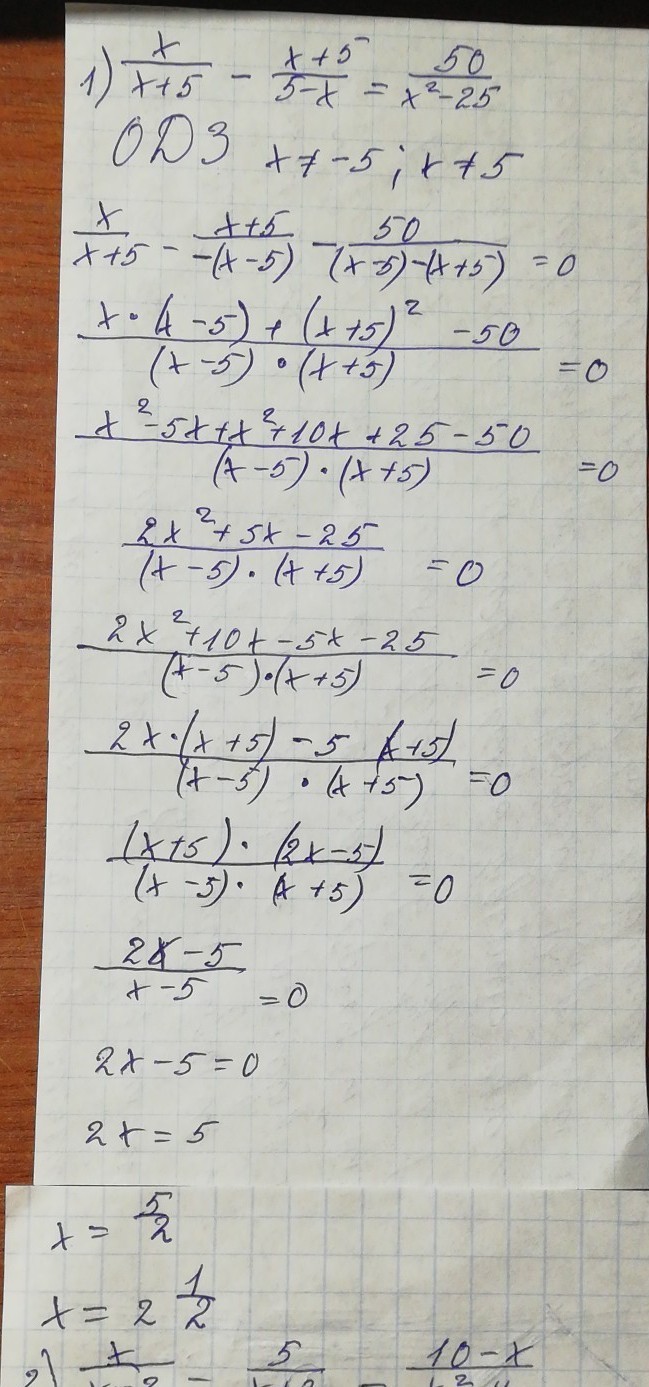 1) x/(x+5) - (x+5)/(5-x) = 50/(x²-25)
ОДЗ x ≠ -5; x ≠ 5
x/(x+5) - (x+5)/(-(x-5)) - 50/((x-5)-(x+5)) = 0
(x·(x-5) + (x+5)² - 50)/((x-5)·(x+5)) = 0
(x²-5x+x²+10x+25-50)/((x-5)·(x+5)) = 0
(2x²+5x-25)/((x-5)·(x+5)) = 0
(2x²+10x-5x-25)/((x-5)·(x+5)) = 0
(2x·(x+5) - 5 (x+5))/((x-5)·(x+5)) = 0
((x+5)·(2x-5))/((x-5)·(x+5)) = 0
(2x-5)/(x-5) = 0
2x-5=0
2x=5
x = 5/2
x = 2 1/2
2) x - 5 = 10-x